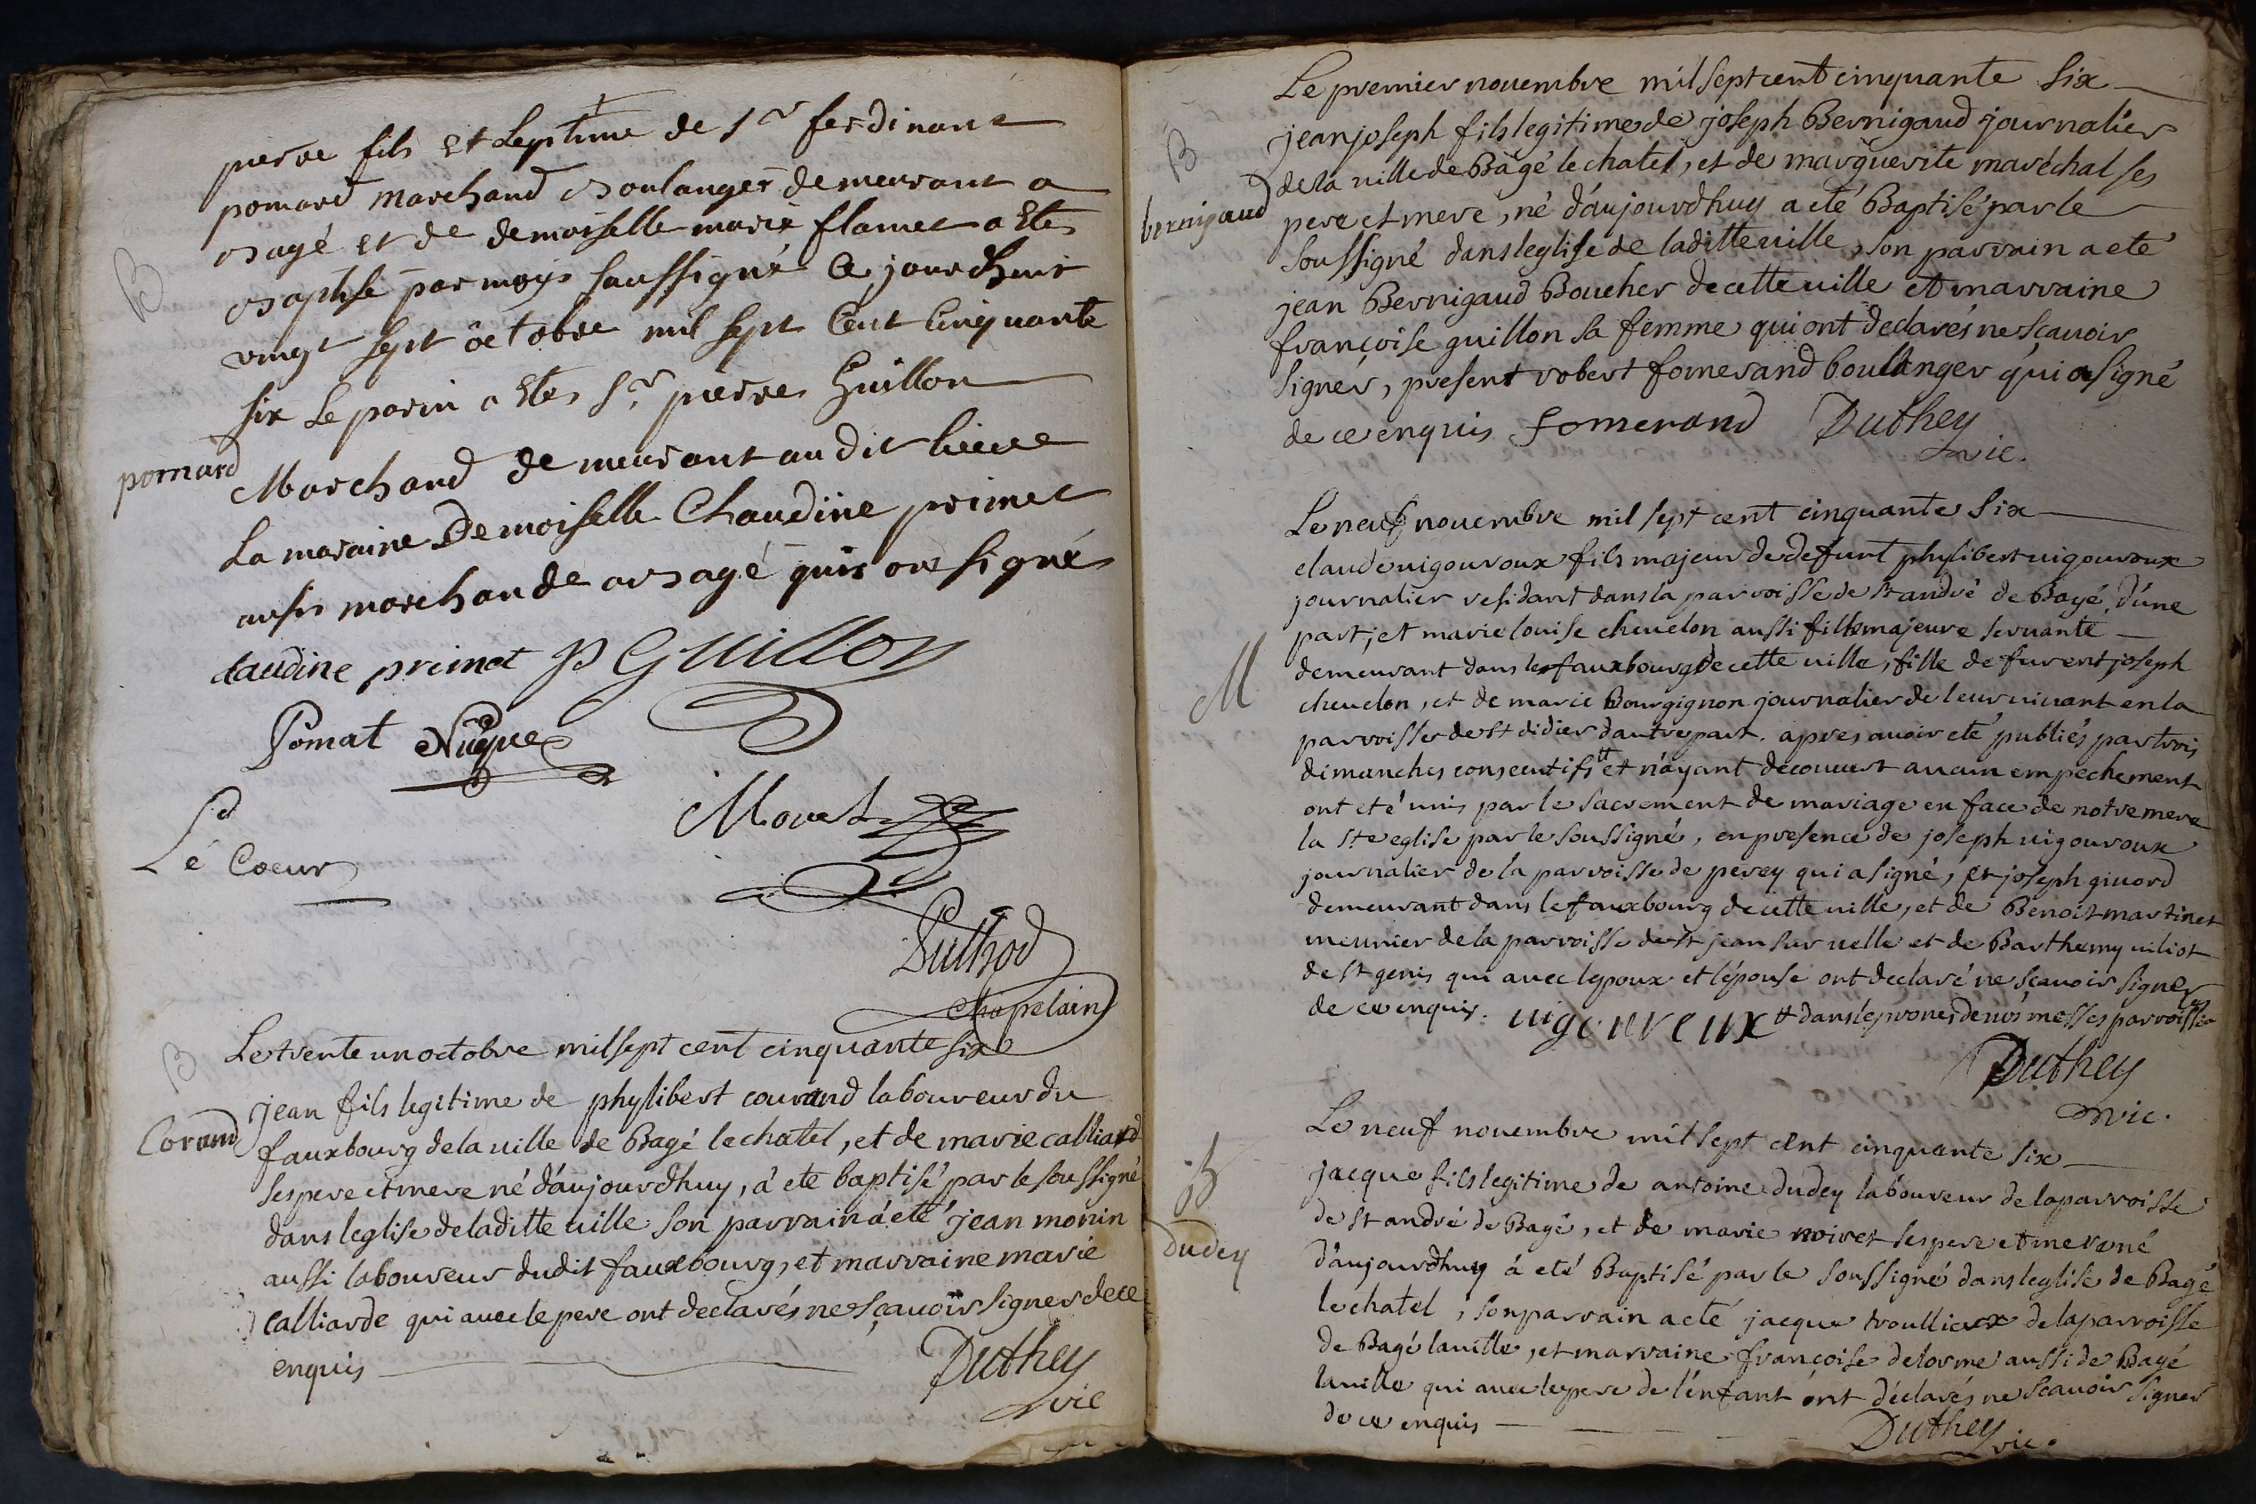 B
pomard
pierre fils et Legitime de Sr ferdinant
pomard marchand Boulanger demeurant a
Bagé et de demoiselle marie flamet a Ete
Baptisé par moys saussigné Ce jourdhuit
vingt sept octobre mil sept Cent Cinquante
six Le parin a Ete Sr pierre Guillon
Marchand demeurant au dit lieue
La maraine Demoiselle Claudine primet
aussi marchande a Bagé quis on signé
claudine primet P Guillon
Pomat Nugue
Morel
Le Coeur
Puthod
Chapelain
B
Corand
Le trente un octobre mil sept cent cinquante six
jean fils legitime de phylibert courand laboureur du
fauxbourg de la uille de Bagé le chatel, et de marie calliard
ses pere et mere né d'aujourdhuy, à eté baptisé par le soussigné
dans leglise de laditte uille son parrain à eté jean monin
aussi laboureur dudit fauxbourg, et marraine marie
calliarde qui auec le pere ont declarés ne sçauoir signer de ce
enquis
Duthey
vic
B
bernigaud
Le premier nouembre mil sept cent cinquante six
jean joseph fils legitime de joseph Bernigaud journalier
de la uille de Bagé le chatel, et de marguerite maréchal ses
pere et mere, né d'aujourdhuy a eté Baptisé par le
soussigné dans leglise de laditte uille, son parrain a eté
jean Bernigaud Boucher de cette uille et marraine
françoise guillon sa femme qui ont declarés ne sçauoir
signer, present robert fomerand boulanger qui a signé
de ce enquis fomerand Duthey
vic.
M
Le neuf nouembre mil sept cent cinquante six
claude uigouroux fils majeur de defunt phylibert uigouroux
journalier residant dans la parroisse de st andré de Bagé, d'une
part, et marie louise cheuclon aussi fille majeure seruante
demeurant dans le fauxbourg de cette uille, fille de furent joseph
cheuclon, et de marie Bourgignon journalier de leur uiuant en la
parroisse de st didier d'autre part. apres auoir eté publiés par trois
dimanches consecutifs # et n'ayant decouuert aucun empechement
ont eté unis par le sacrement de mariage en face de notre mere
la ste eglise par le soussigné, en presence de joseph uigouroux
journalier de la parroisse de perey qui a signé, et joseph giuord
demeurant dans le fauxbourg de cette uille, et de Benoit martinet
meunier de la parroisse de st jean sur uelle et de Barthemy uiliot
de st genis qui auec lepoux et lépouse ont declaré ne sçauoir signer
de ce enquis. uigoureux # dans les prones de nos messes parroissialles
Duthey
vic.
B
dudey
Le neuf nouembre mil sept cent cinquante six
jacque fils legitime de antoine dudey laboureur de la parroisse
de st andré de Bagé, et de marie noiret ses pere et mere né
d'aujourdhuy à eté Baptisé par le soussigné dans leglise de Bagé
le chatel, son parrain a eté jacque troullieux de la parroisse
de Bagé la uille, et marraine françoise delorme aussi de Bagé
la uille qui auec le pere de l'enfant ont déclarés ne scauoir signer
de ce enquis
Duthey vic.